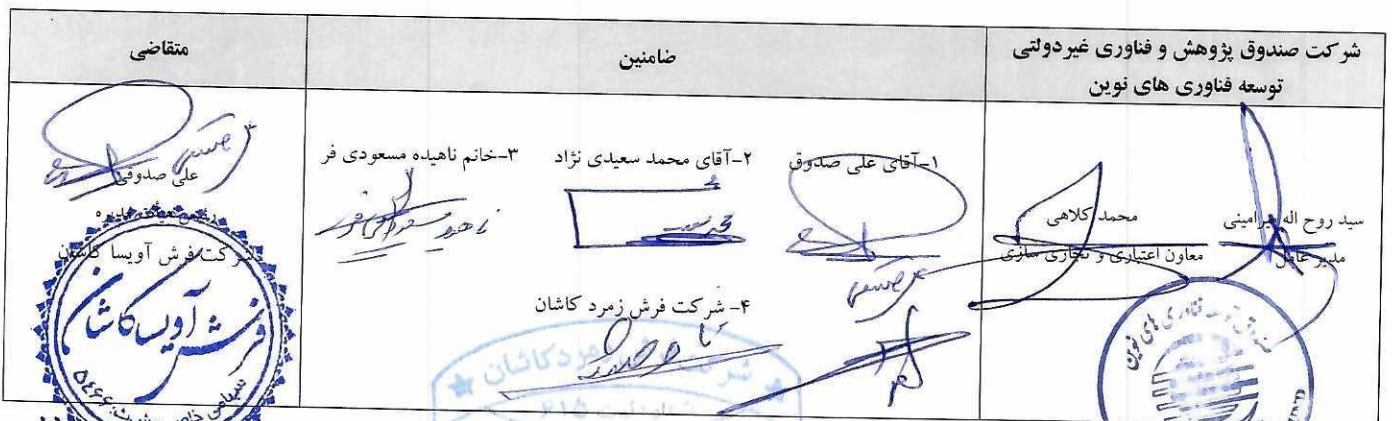 شرکت صندوق پژوهش و فناوری غیردولتی
توسعه فناوری های نوین
ضامنین
متقاضی
سید روح اله میرامینی
مدیر عامل
محمد کلاهی
معاون اعتباری و تجاری سازی
۱-آقای علی صدوق
۲-آقای محمد سعیدی نژاد
۳-خانم ناهیده مسعودی فر
۴- شرکت فرش زمرد کاشان
علی صدوقی
رئیس هیأت مدیره
شرکت فرش آویسا کاشان
فرش آویسا کاشان
سهامی خاص
صندوق توسعه فناوری های نوین